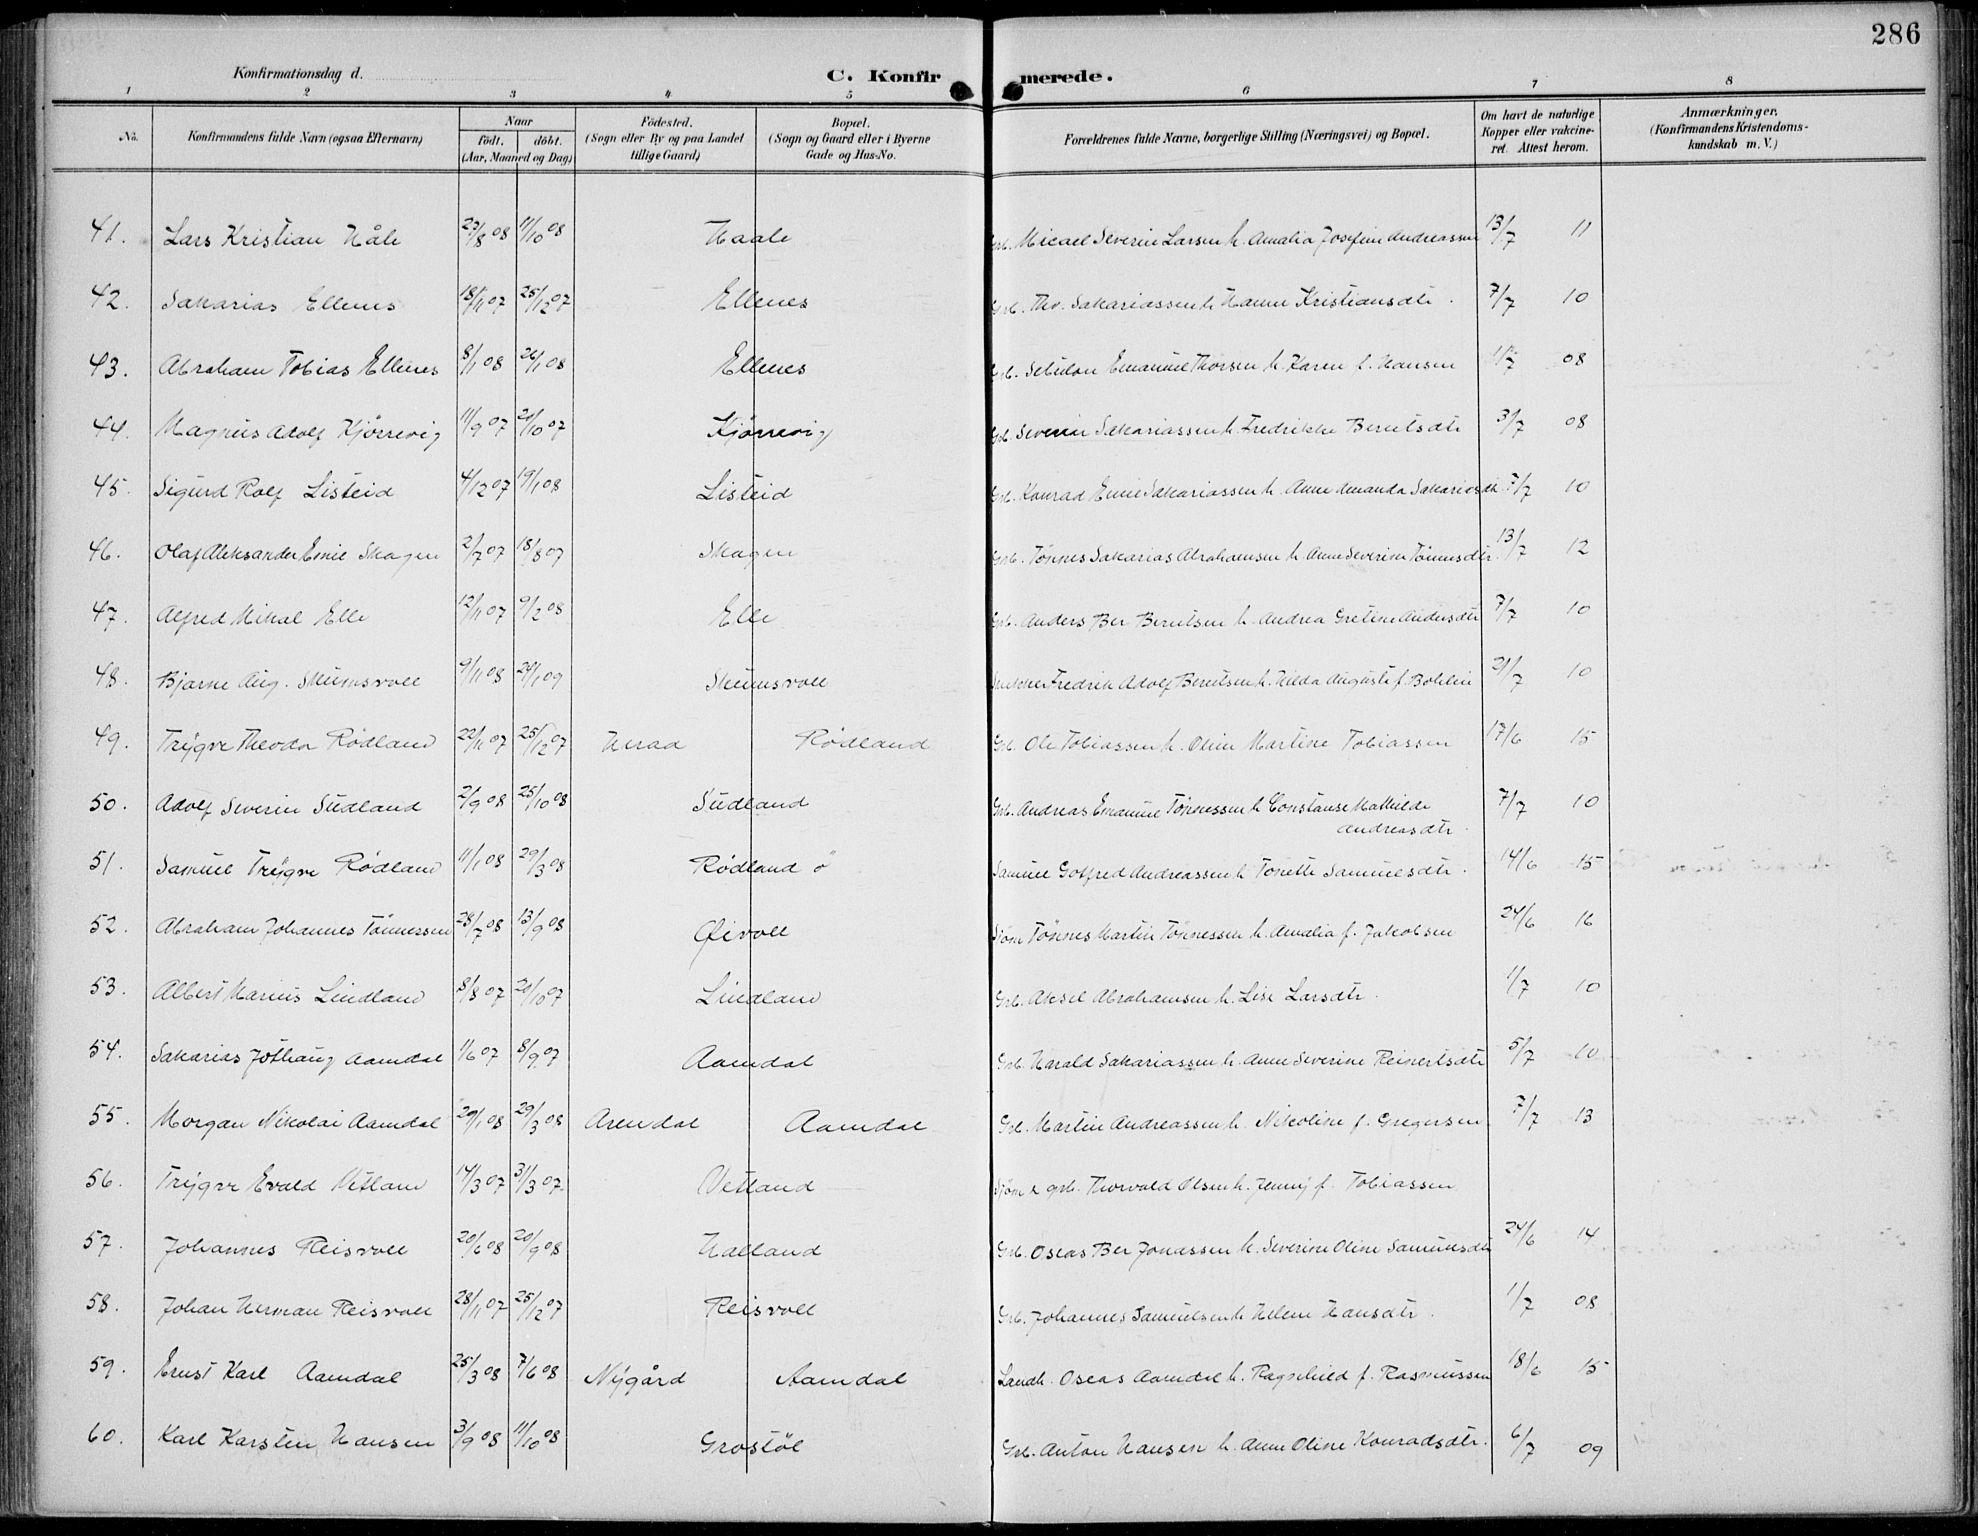 286
Konfirmationsdag d.
C. Konfirmerede.
1 2 3 4 5 6 7 8
No. Konfirmandens fulde Navn (ogsaa Efternavn) Naar født. døbt. (Aar, Maaned og Dag) Fødested. (Sogn eller By og paa Landet tillige Gaard) Bopæl. (Sogn og Gaard eller i Byerne Gade og Hus-No. Forældrenes fulde Navne, borgerlige Stilling (Næringsvei) og Bopæl. Om havt de naturlige Kopper eller vakcineret. Attest herom. Anmærkninger. (Konfirmandens Kristendomskundskab m. V.)
41. Lars Kristian Håle 23/8 08 11/10 08 Haale Grb. Micael Severin Larsen h. Amalia Josefine Andreassen 13/7 11
42. Sakarias Ellenes 18/11 07 25/12 07 Ellenes Grb. Thv. Sakariassen h. Hanne Kristiansdtr. 7/7 10
43. Abraham Tobias Ellenes 8/1 08 26/1 08 Ellenes Grb. Sebulon Emanuel Thorsen h. Karen f. Hansen 1/7 08
44. Magnus Adolf Kjørrevig 11/9 07 20/10 07 Kjørrevig Grb. Severin Sakariassen h. Fredrikke Berntsdtr 3/7 08
45. Sigurd Rolf Listeid 4/12 07 19/1 08 Listeid Grb. Konrad Emil Sakariassen h. Anne Amanda Sakariasdtr 7/7 10
46. Olaf Aleksander Emil Skagen 2/7 07 18/8 07 Skagen Grb. Tønnes Sakarias Abrahamsen h. Anne Severine Tønnesdtr. 13/7 12
47. Alfred Mikal Elle 12/11 07 9/2 08 Elle Grb. Anders Ber Berntsen h. Andrea Gretine Andersdtr 7/7 10
48. Bjarne Aug. Skumsvoll 9/11 08 24/1 09 Skumsvoll Snekker Fredrik Adolf Berntsen h. Hilda Augusta f. Bohlin 21/7 10
49. Trygve Theodor Rødland 22/11 07 25/12 07 Herad Rødland Grb. Ole Tobiassen h. Oline Martine Tobiassen 17/6 15
50. Adolf Severin Sudland 2/9 08 25/10 08 Sudland Grb. Andreas Emanuel Tønnessen h Constanse Mathilde 7/7 10
Andreasdtr.
51. Samuel Trygve Rødland 11/1 08 29/3 08 Rødland ø Samuel Gotfred Andreassen h Tonette Samuelsdtr. 14/6 15
52. Abraham Johannes Tønnessen 28/7 08 13/9 08 Øivoll Sjøm Tønnes Martin Tønnessen h. Amalia f. Jakobsen 24/6 16
53. Albert Marius Lindland 8/8 07 20/10 07 Lindland Grb. Aksel Abrahamsen h. Lise Larsdtr. 1/7 10
54. Sakarias Jothaug Aamdal 1/6 07 8/9 07 Aamdal Grb. Harald Sakariassen h. Anne Severine Reinertsdtr 5/7 10
55. Morgan Nikolai Aamdal 29/1 08 29/3 08 Arendal Aamdal Grb. Martin Andreassen h. Nikoline f. Gregersen 7/7 13
56. Trygve Evald Vetland 14/3 07 31/3 07 Vetland Sjøm & grb. Thorvald Olsen h. Jenny f. Tobiassen
57. Johannes Reisvoll 20/6 08 20/9 08 Halland Grb. Oscas Ber Jonassen h. Severine Oline Samuelsdtr 24/6 14
58. Johan Herman Reisvoll 28/11 07 25/12 07 Reisvoll Grb. Johannes Samuelsen h Helene Hansdtr. 1/7 08
59. Ernst Karl Aamdal 25/3 08 7/6 08 Nygård Aamdal Landh. Oseas Aamdal h. Ragnhild f. Rasmussen 18/6 15
60. Karl Karsten Hansen 3/9 08 11/10 08 Grostøl Grb. Anton Hansen h. Anne Oline Konradsdtr. 6/7 09